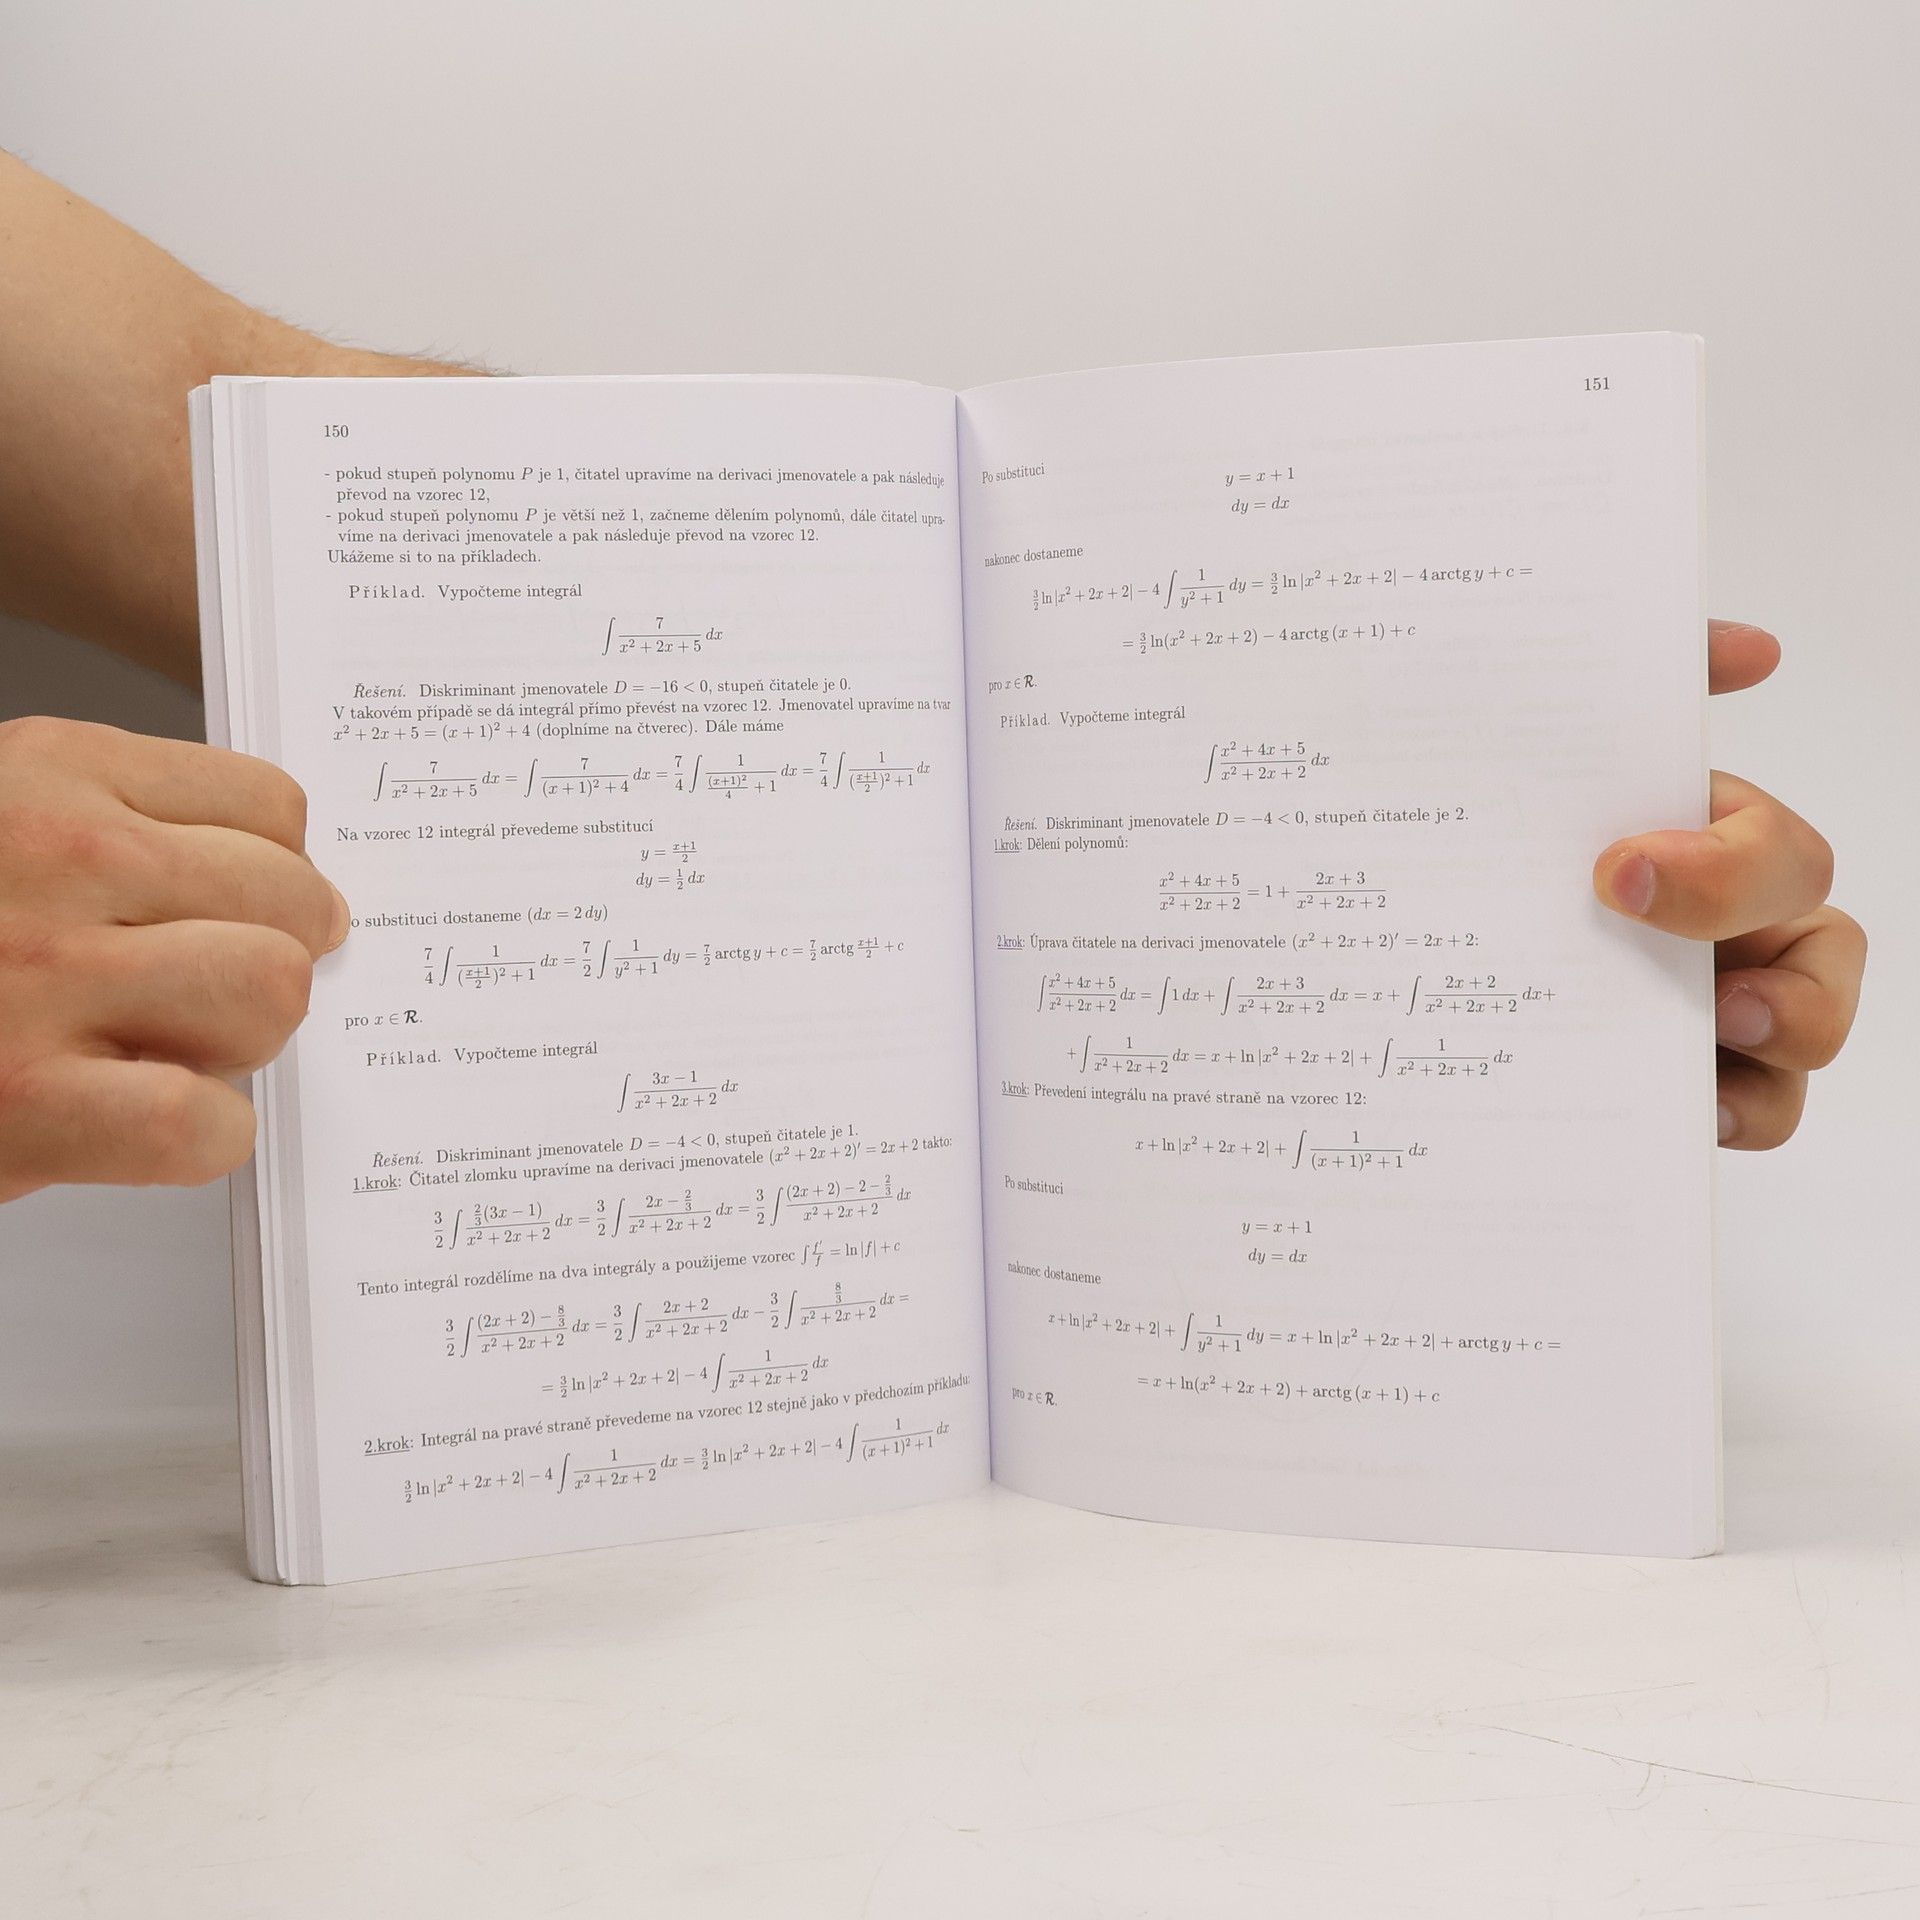 150
- pokud stupeň polynomu P je 1, čitatel upravíme na derivaci jmenovatele a pak následuje
převod na vzorec 12,
- pokud stupeň polynomu P je větší než 1, začneme dělením polynomů, dále čitatel upra-
víme na derivaci jmenovatele a pak následuje převod na vzorec 12.
Ukážeme si to na příkladech.
Příklad. Vypočteme integrál
∫ 7/(x² + 2x + 5) dx
Řešení. Diskriminant jmenovatele D = −16 < 0, stupeň čitatele je 0.
V takovém případě se dá integrál přímo převést na vzorec 12. Jmenovatel upravíme na tvar
x² + 2x + 5 = (x + 1)² + 4 (doplníme na čtverec). Dále máme
∫ 7/(x² + 2x + 5) dx = ∫ 7/((x + 1)² + 4) dx = 7/4 ∫ 1/((x+1)²/4 + 1) dx = 7/4 ∫ 1/(((x+1)/2)² + 1) dx
Na vzorec 12 integrál převedeme substitucí
y = (x+1)/2
dy = 1/2 dx
o substituci dostaneme (dx = 2 dy)
7/4 ∫ 1/(((x+1)/2)² + 1) dx = 7/2 ∫ 1/(y² + 1) dy = 7/2 arctg y + c = 7/2 arctg (x+1)/2 + c
pro x ∈ R.
Příklad. Vypočteme integrál
∫ (3x − 1)/(x² + 2x + 2) dx
Řešení. Diskriminant jmenovatele D = −4 < 0, stupeň čitatele je 1.
1.krok: Čitatel zlomku upravíme na derivaci jmenovatele (x² + 2x + 2)′ = 2x + 2 takto:
3/2 ∫ (2/3(3x − 1))/(x² + 2x + 2) dx = 3/2 ∫ (2x − 2/3)/(x² + 2x + 2) dx = 3/2 ∫ ((2x + 2) − 2 − 2/3)/(x² + 2x + 2) dx
Tento integrál rozdělíme na dva integrály a použijeme vzorec ∫ f′/f = ln |f| + c
3/2 ∫ ((2x + 2) − 8/3)/(x² + 2x + 2) dx = 3/2 ∫ (2x + 2)/(x² + 2x + 2) dx − 3/2 ∫ (8/3)/(x² + 2x + 2) dx =
= 3/2 ln |x² + 2x + 2| − 4 ∫ 1/(x² + 2x + 2) dx
2.krok: Integrál na pravé straně převedeme na vzorec 12 stejně jako v předchozím příkladu:
3/2 ln |x² + 2x + 2| − 4 ∫ 1/(x² + 2x + 2) dx = 3/2 ln |x² + 2x + 2| − 4 ∫ 1/((x + 1)² + 1) dx
151
Po substituci
y = x + 1
dy = dx
nakonec dostaneme
3/2 ln |x² + 2x + 2| − 4 ∫ 1/(y² + 1) dy = 3/2 ln |x² + 2x + 2| − 4 arctg y + c =
= 3/2 ln(x² + 2x + 2) − 4 arctg (x + 1) + c
pro x ∈ R.
Příklad. Vypočteme integrál
∫ (x² + 4x + 5)/(x² + 2x + 2) dx
Řešení. Diskriminant jmenovatele D = −4 < 0, stupeň čitatele je 2.
1.krok: Dělení polynomů:
(x² + 4x + 5)/(x² + 2x + 2) = 1 + (2x + 3)/(x² + 2x + 2)
2.krok: Úprava čitatele na derivaci jmenovatele (x² + 2x + 2)′ = 2x + 2:
∫ (x² + 4x + 5)/(x² + 2x + 2) dx = ∫ 1 dx + ∫ (2x + 3)/(x² + 2x + 2) dx = x + ∫ (2x + 2)/(x² + 2x + 2) dx+
+ ∫ 1/(x² + 2x + 2) dx = x + ln |x² + 2x + 2| + ∫ 1/(x² + 2x + 2) dx
3.krok: Převedení integrálu na pravé straně na vzorec 12:
x + ln |x² + 2x + 2| + ∫ 1/((x + 1)² + 1) dx
Po substituci
y = x + 1
dy = dx
nakonec dostaneme
x + ln |x² + 2x + 2| + ∫ 1/(y² + 1) dy = x + ln |x² + 2x + 2| + arctg y + c =
= x + ln(x² + 2x + 2) + arctg (x + 1) + c
pro x ∈ R.